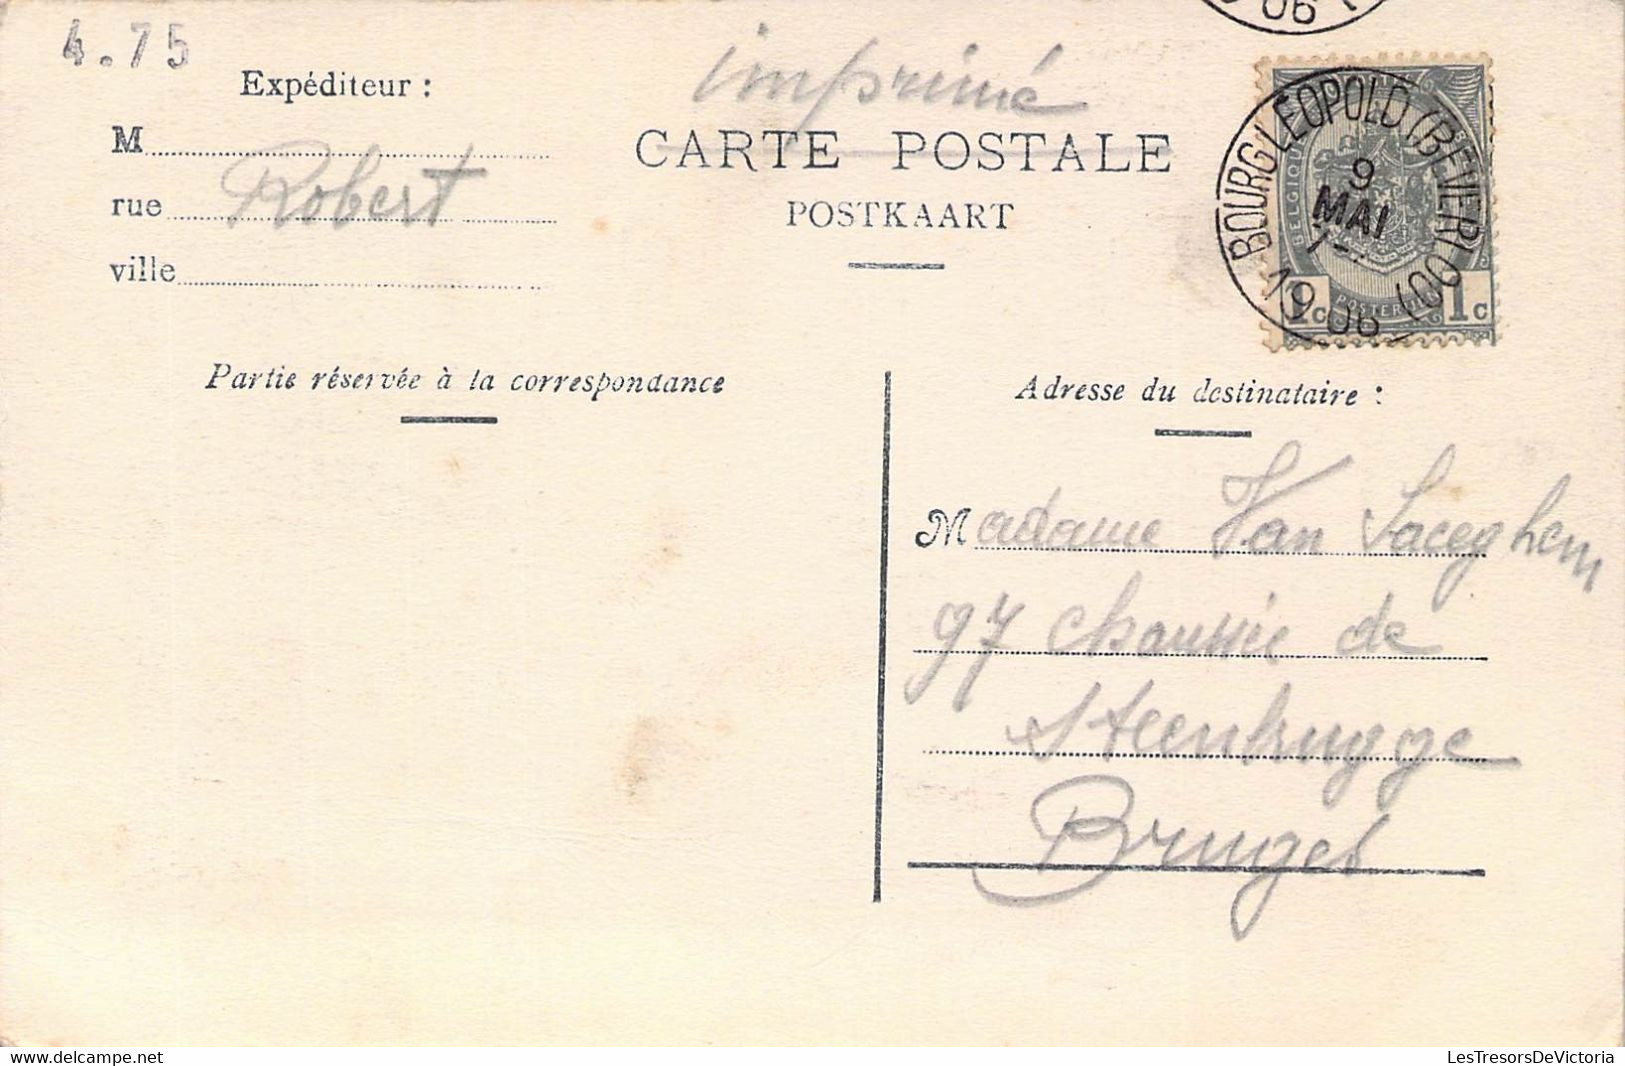 4.75
imprimé
Expéditeur :
M
CARTE POSTALE
Robert
rue
POSTKAART
ville
BOURG LEOPOLD (BEVERLOO)
9
MAI
1906
BELGIQUE
POSTERIJEN
1c 1c
Partie réservée à la correspondance
Adresse du destinataire :
Madame Van Saceghem
97 chaussée de
Steenbrugge
Bruges
delcampe.net
LesTresorsDeVictoria